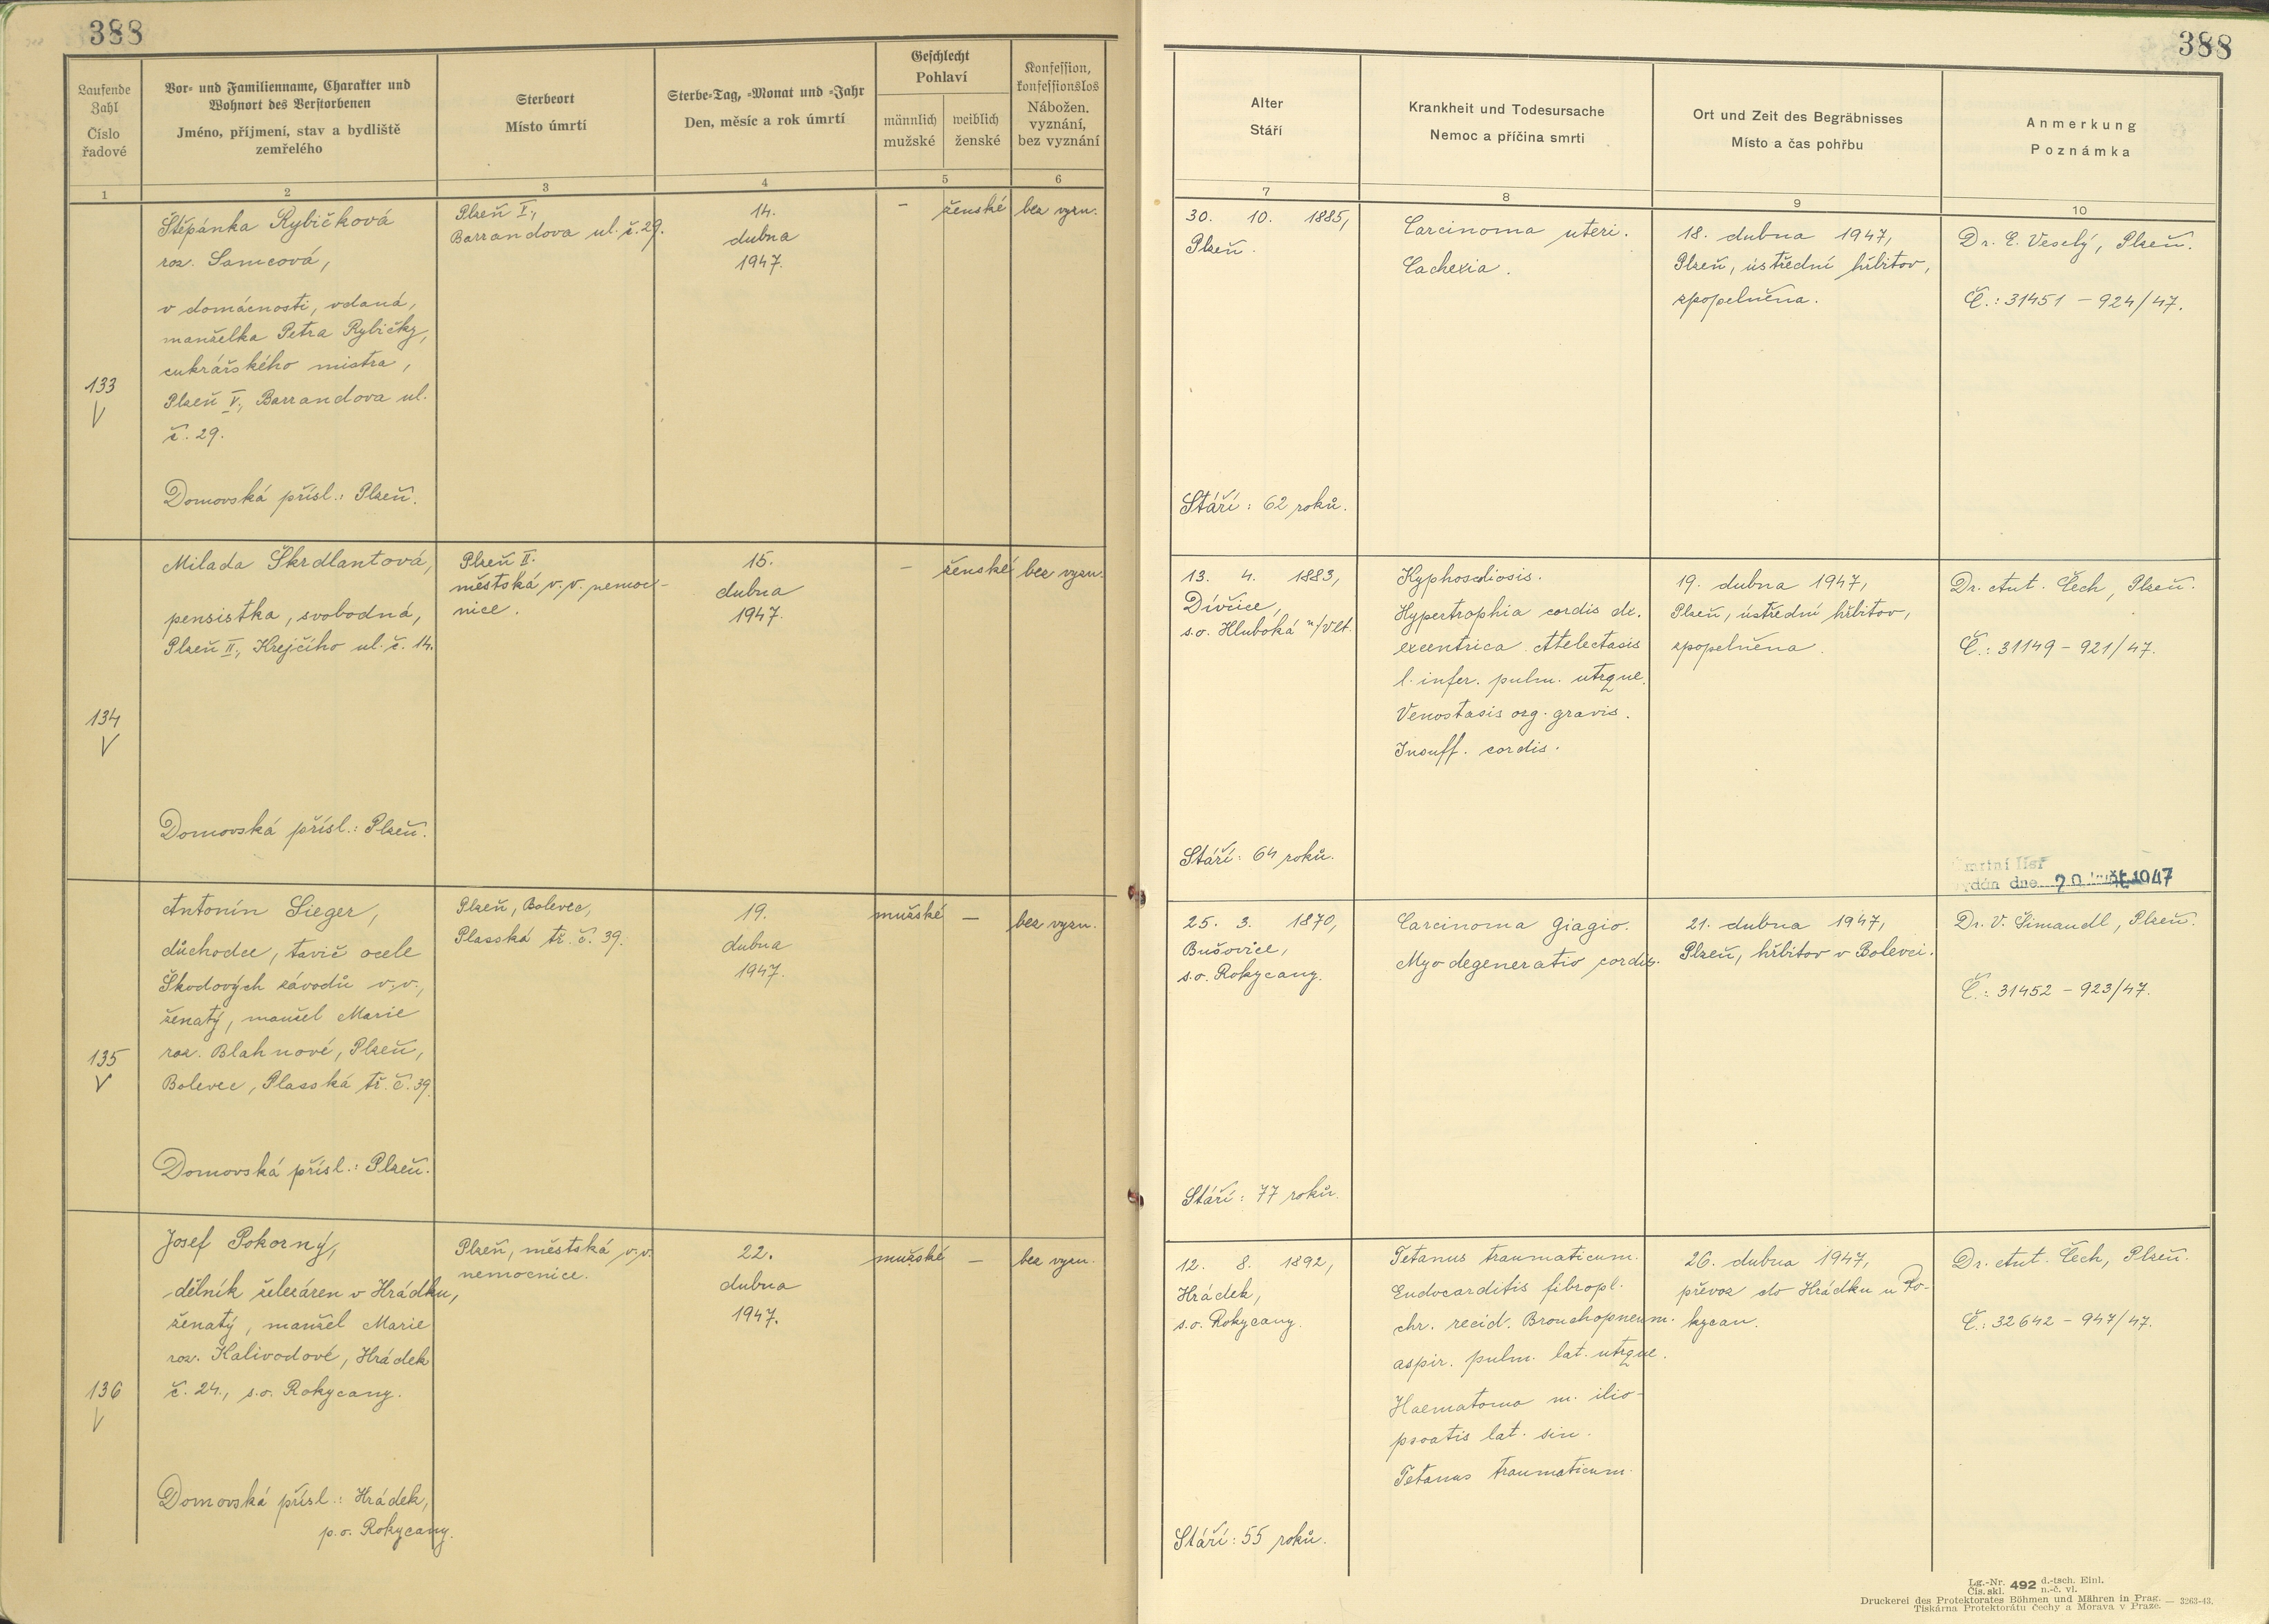 388
388
Laufende Zahl
Číslo řadové
Vor- und Familienname, Charakter und
Wohnort des Verstorbenen
Jméno, příjmení, stav a bydliště
zemřelého
Sterbeort
Místo úmrtí
Sterbe-Tag, -Monat und -Jahr
Den, měsíc a rok úmrtí
Geschlecht
Pohlaví
männlich
mužské
weiblich
ženské
Konfession,
konfessionslos
Nábožen.
vyznání,
bez vyznání
Alter
Stáří
Krankheit und Todesursache
Nemoc a příčina smrti
Ort und Zeit des Begräbnisses
Místo a čas pohřbu
Anmerkung
Poznámka
1 2 3 4 5 6 7 8 9 10
133
V
Štěpánka Rybičková
roz. Samcová,
v domácnosti, vdaná,
manželka Petra Rybičky,
cukrářského mistra,
Plzeň V., Barrandova ul.
č. 29.
Domovská přísl.: Plzeň.
Plzeň V.,
Barrandova ul. č. 29.
14.
dubna
1947.
–
ženské
bez vyzn.
30. 10. 1885,
Plzeň.
Stáří: 62 roků.
Carcinoma uteri.
Cachexia.
18. dubna 1947,
Plzeň, ústřední hřbitov,
zpopelněna.
Dr. E. Veselý, Plzeň.
Č.: 31451 – 924/47.
134
V
Milada Škrdlantová,
pensistka, svobodná,
Plzeň II., Krejčího ul. č. 14.
Domovská přísl.: Plzeň.
Plzeň II.
městská v. v. nemoc-
nice.
15.
dubna
1947.
–
ženské
bez vyzn.
13. 4. 1883,
Dívčice,
s.o. Hluboká n/Vlt.
Stáří: 64 roků.
Kyphoscoliosis.
Hypertrophia cordis dx.
excentrica. Atelectasis
l. infer. pulm. utrque.
Venostasis org. gravis.
Insuff. cordis.
19. dubna 1947,
Plzeň, ústřední hřbitov,
zpopelněna.
Dr. Ant. Čech, Plzeň.
Č.: 31149 – 921/47.
dne 1947
135
V
Antonín Sieger,
důchodce, tavič ocele
Škodových závodů v. v.,
ženatý, manžel Marie
roz. Blahnové, Plzeň,
Bolevec, Plasská tř. č. 39.
Domovská přísl.: Plzeň.
Plzeň, Bolevec,
Plasská tř. č. 39.
19.
dubna
1947.
mužské
–
bez vyzn.
25. 3. 1870,
Bušovice,
s.o. Rokycany.
Stáří: 77 roků.
Carcinoma Giagio.
Myodegeneratio cordis.
21. dubna 1947,
Plzeň, hřbitov v Bolevci.
Dr. V. Šimandl, Plzeň.
Č.: 31452 – 923/47.
136
V
Josef Pokorný,
dělník železáren v Hrádku,
ženatý, manžel Marie
roz. Kalivodové, Hrádek
č. 24., s.o. Rokycany.
Domovská přísl.: Hrádek,
p.o. Rokycany.
Plzeň, městská v. v.
nemocnice.
22.
dubna
1947.
mužské
–
bez vyzn.
12. 8. 1892,
Hrádek,
s.o. Rokycany.
Stáří: 55 roků.
Tetanus traumaticum.
Endocarditis fibropl.
chr. recid. Bronchopneum.
aspir. pulm. lat. utrque.
Haematoma m. ilio-
psoatis lat. sin.
Tetanus traumaticum.
26. dubna 1947,
převoz do Hrádku u Ro-
kycan.
Dr. Ant. Čech, Plzeň.
Č.: 32642 – 947/47.
Lg.-Nr. 492 d.-tsch. Einl.
Čís. skl. n.-č. vl.
Druckerei des Protektorates Böhmen und Mähren in Prag. — 3263-43.
Tiskárna Protektorátu Čechy a Morava v Praze.